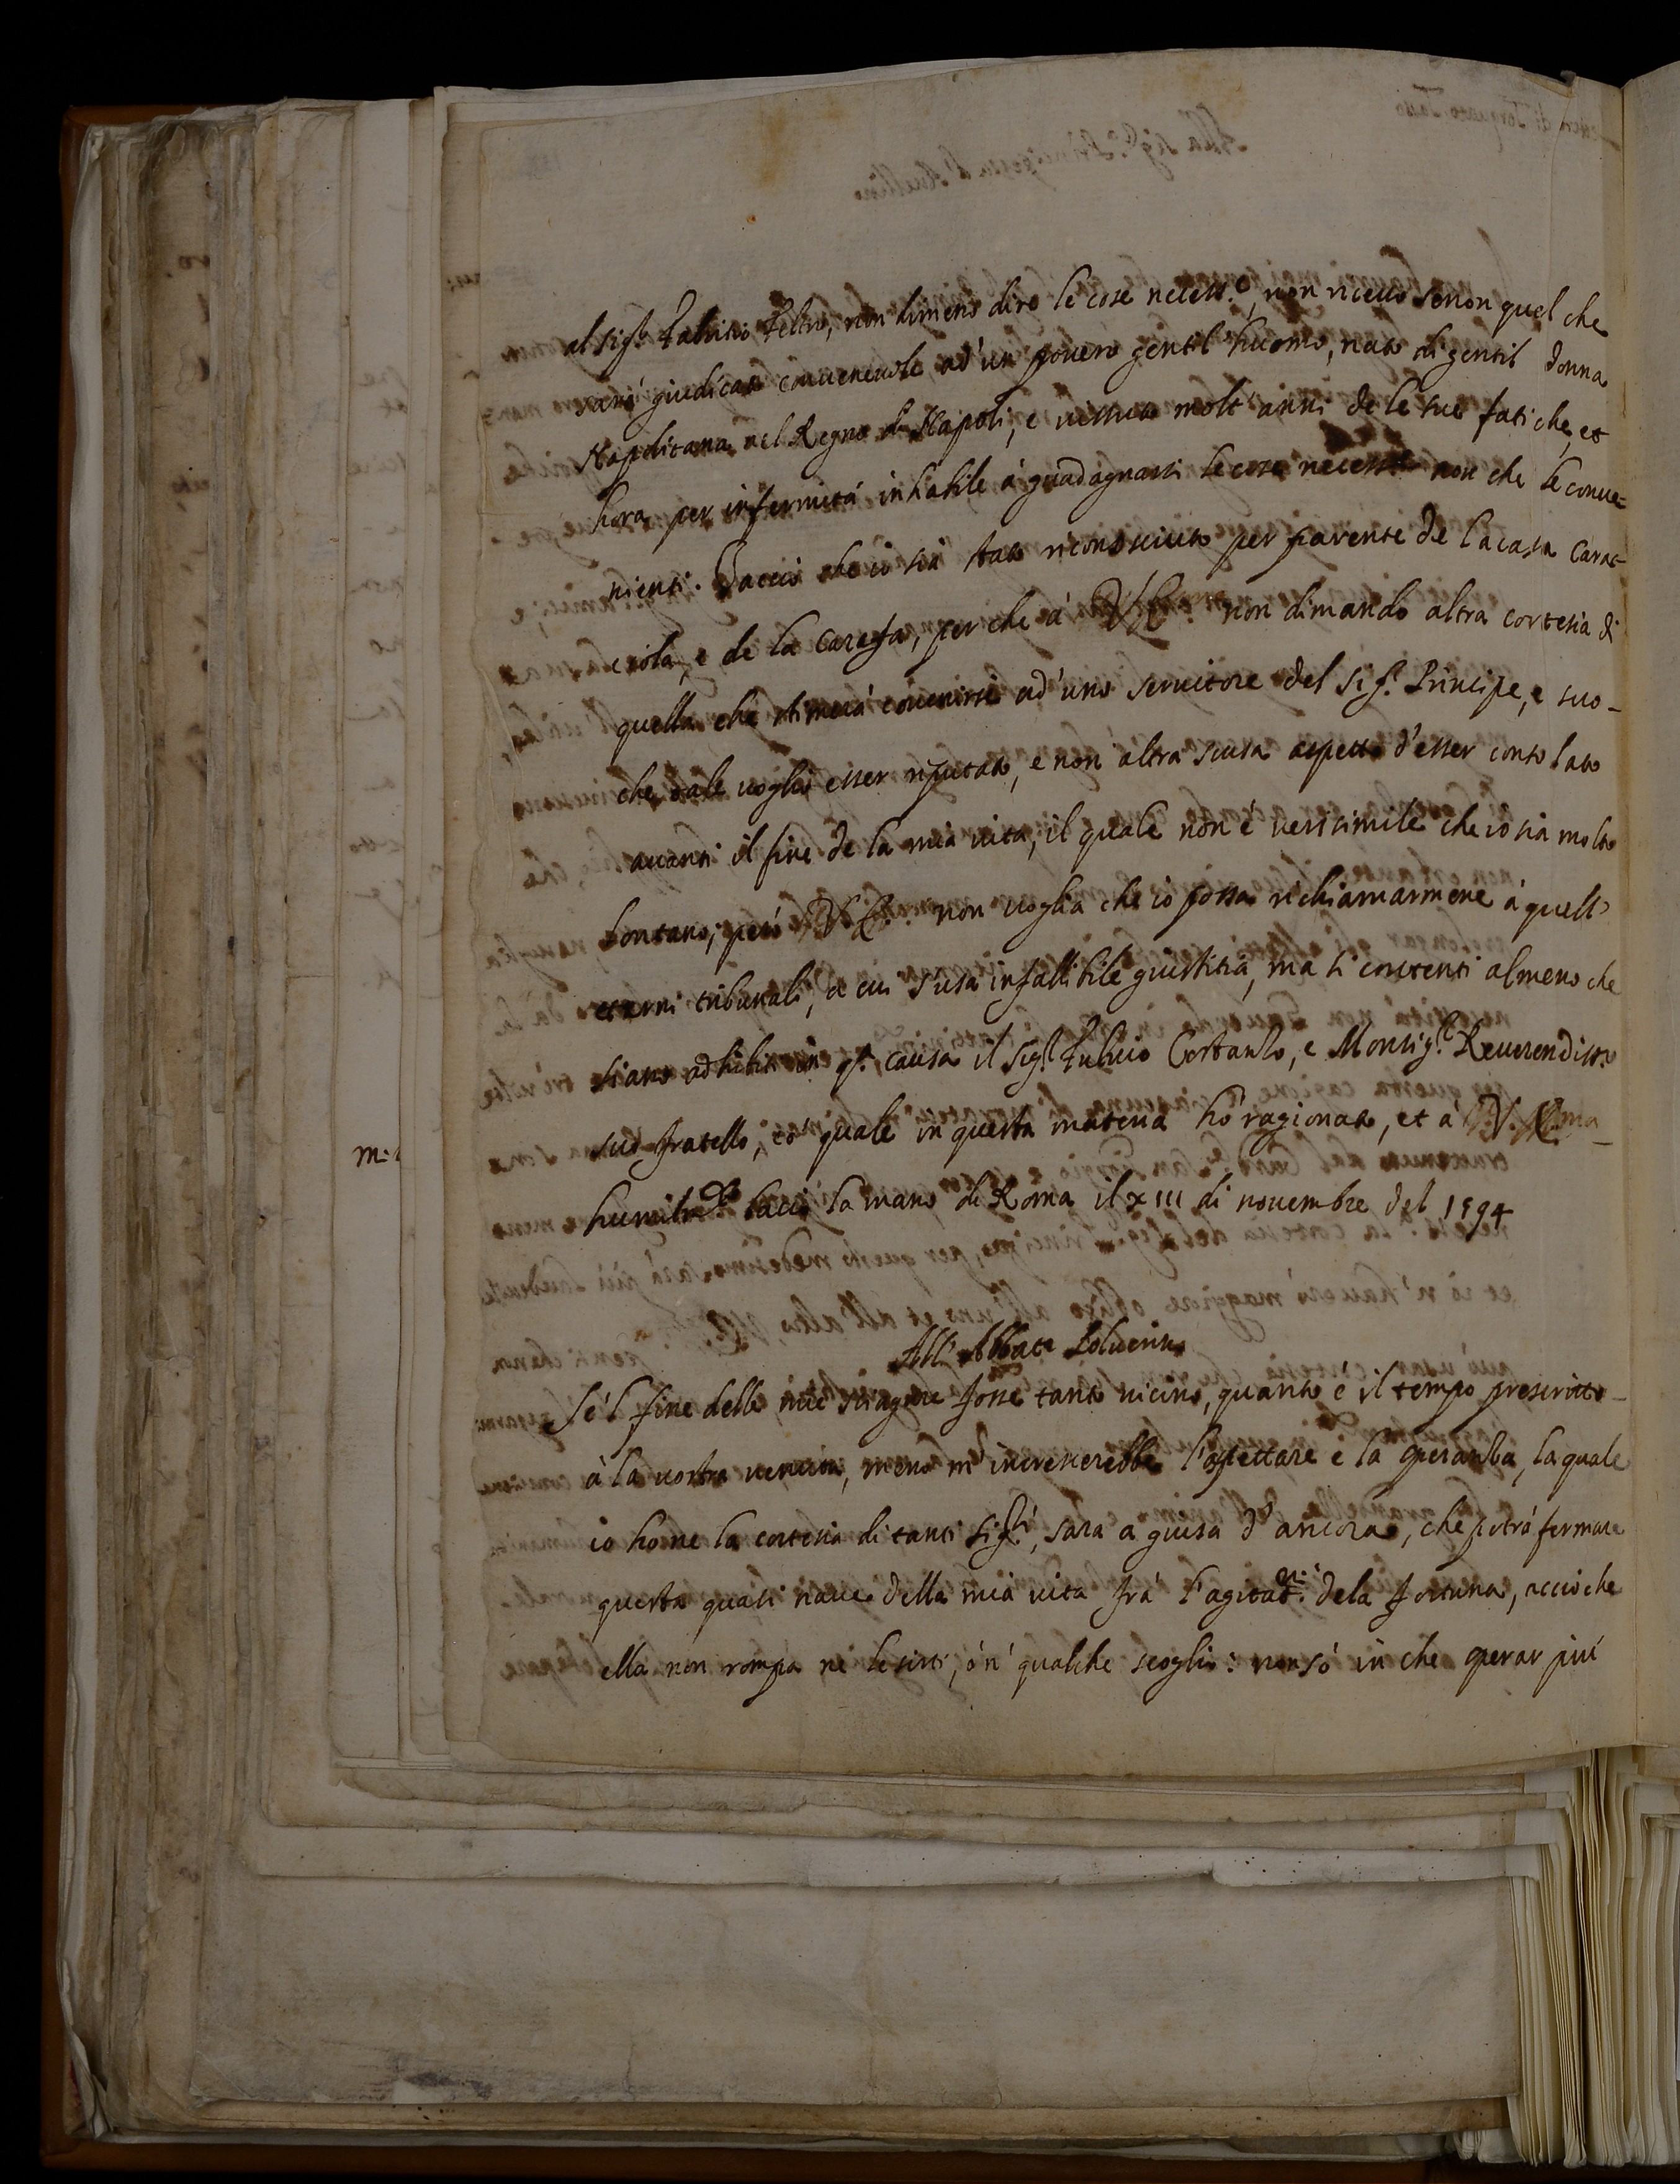 al Sig.r Fabritio Feltro, non dimeno diro le cose necess.e, non ricevo senon quel che
sará giudicato convenevole ad'un povero gentil huomo, nato di gentil donna
Napolitana nel Regno di Napoli, e vissuto molt'anni de le sue fatiche, et
hora per infermitá inhabile á guadagnarsi le cose necess.e non che le conve-
nienti. Taccio che io sia stato riconosciuto per parente de la casa Carac-
ciola, e de la Carafa, perche á V. E. non dimando altra cortesia di
quella che stimerá convenirsi ad'uno servitore del Sig.r Principe, e suo
che tale voglio esser riputato, e non altra scusa aspetto d'esser consolato
avanti il fine de la mia vita, il quale non é verisimile che io sia molto
lontano; peró V. E. non voglia che io possa richiamarmene á quell'
eterni tribunali, a cui s'usa infallibile giustitia, ma si contenti almeno che
siano adhibiti in q.ta causa il Sig.r Fulvio Costanzo, e Monsig.r Reverendiss.o
suo fratello, co' quale in questa materia hó ragionato, et á V. E.
humilm.te bacio la mano di Roma il XIII di novembre del 1594
All'Abbate Polverino
Sé'l fine delle mie sciagure fosse tanto vicino, quanto é il tempo prescritto
á la vostra venuta, meno m'increscerebbe l'aspettare e la speranza, la quale
io hó ne la cortesia di tanti Sig.ri, sara a guisa d'ancora, che potrá fermare
questa quasi nave della mia vita frá l'agitat.ni dela fortuna, accioche
ella non rompa né le sirti, ó n'qualche scoglio: non só in che sperar piú